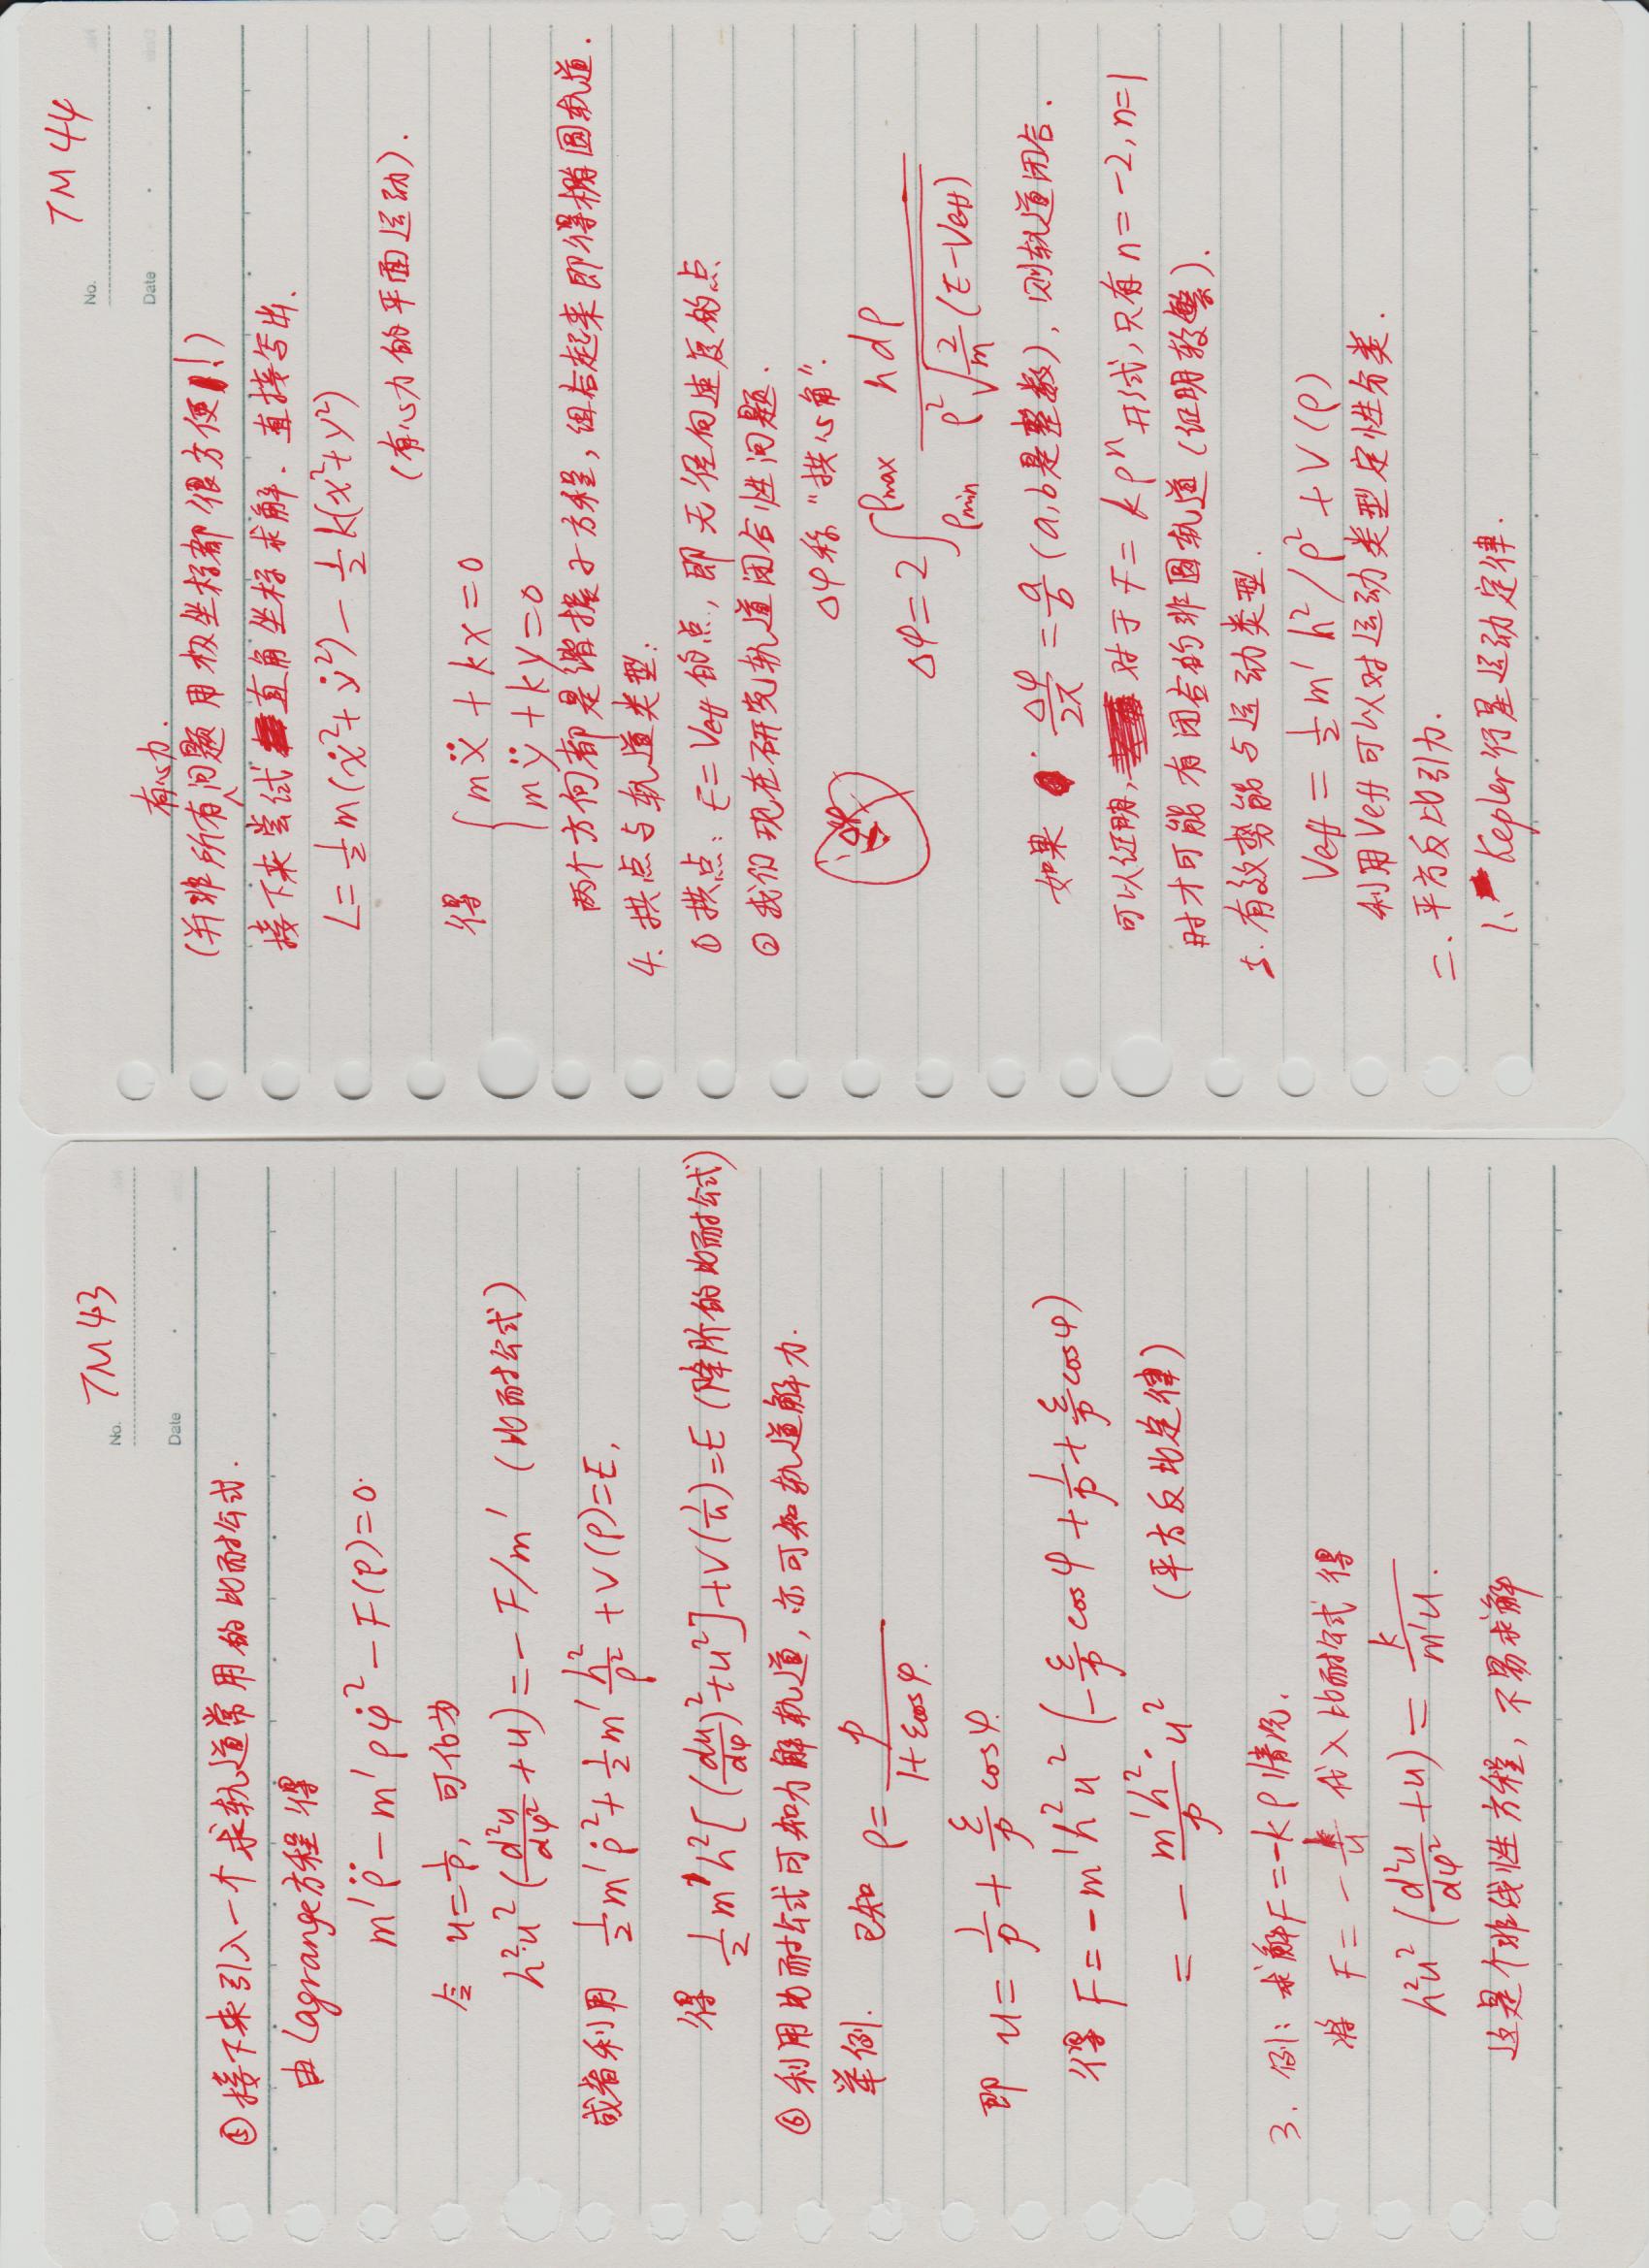 No. TM 43
Date
⑤ 接下来引入一个求轨道常用的比耐公式.
由Lagrange方程得
m'ρ̈ - m'ρφ̇² - F(ρ) = 0.
令 u = 1/ρ, 可化为
h²u² (d²u/dφ² + u) = - F/m' (比耐公式)
或者利用 1/2 m'ρ̇² + 1/2 m' h²/ρ² + V(ρ) = E,
得 1/2 m'h² [(du/dφ)² + u²] + V(1/u) = E (降阶的比耐公式)
⑥ 利用比耐公式可知力解轨道, 亦可知轨道解力.
举例. 已知 ρ = p/(1+εcosφ).
即 u = 1/p + ε/p cosφ.
得 F = - m'h²u² (- ε/p cosφ + 1/p + ε/p cosφ)
= - m'h²/p · u² (平方反比定律)
3. 例: 求解F = -kρ情况.
将 F = - k/u 代入比耐公式得
h²u² (d²u/dφ² + u) = k/(m'u).
这是个非线性方程, 不易求解
No. TM 44
Date
有心力.
(并非所有^问题用极坐标都很方便!)
接下来尝试直角坐标求解. 直接写出.
L = 1/2 m(ẋ² + ẏ²) - 1/2 k(x² + y²)
(有心力的平面运动).
得 { mẍ + kx = 0
mÿ + ky = 0
两个方向都是谐振子方程, 组合起来即得椭圆轨道.
4. 拱点与轨道类型:
① 拱点: E = Veff 的点, 即无径向速度的点
② 我们现在研究轨道闭合性问题.
Δφ称 "拱心角".
Δφ
Δφ = 2 ∫_{ρmin}^{ρmax} h dρ / (ρ² √(2/m (E - Veff)))
如果 Δφ/2π = a/b (a,b是整数), 则轨道闭合.
可以证明, 对于 F = kρⁿ 形式, 只有 n = -2, n = 1
时才可能有闭合的非圆轨道 (证明较繁).
5. 有效势能与运动类型.
Veff = 1/2 m' h²/ρ² + V(ρ)
利用Veff可以对运动类型定性分类.
二. 平方反比引力.
1. Kepler行星运动定律.